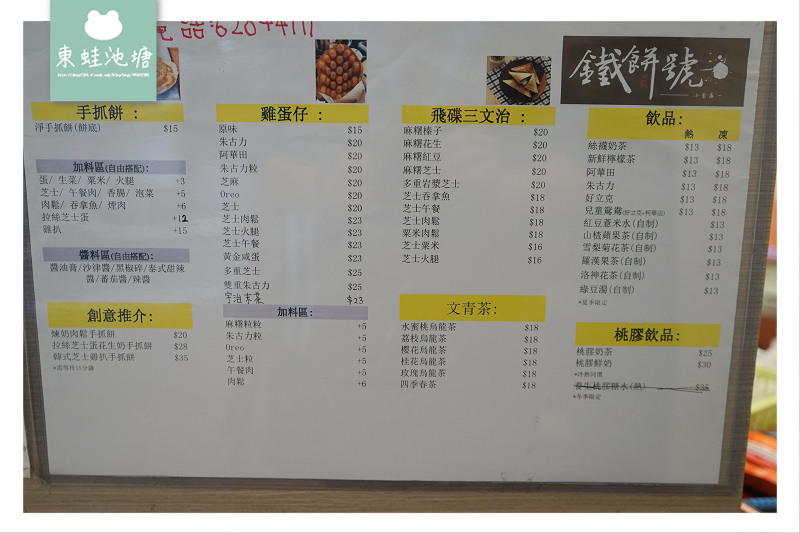 東蛙池塘
電話:62844111
鐵餅號
手抓餅 :
淨手抓餅(餅底) $15
加料區(自由搭配):
蛋/ 生菜/ 粟米/ 火腿 +3
芝士/ 午餐肉/ 香腸/ 泡菜 +5
肉鬆/ 吞拿魚/ 煙肉 +6
拉絲芝士蛋 +12
雞扒 +15
醬料區(自由搭配):
醬油膏/沙律醬/黑椒碎/泰式甜辣
醬/蕃茄醬/辣醬
創意推介:
煉奶肉鬆手抓餅 $20
拉絲芝士蛋花生奶手抓餅 $28
韓式芝士雞扒手抓餅 $35
*需等待15分鐘
雞蛋仔 :
原味 $15
朱古力 $20
阿華田 $20
朱古力粒 $20
芝麻 $20
Oreo $20
芝士 $20
芝士肉鬆 $23
芝士火腿 $23
芝士午餐 $23
黃金咸蛋 $23
多重芝士 $25
雙重朱古力 $25
宇治抹茶 $23
加料區:
麻糬粒粒 +5
朱古力粒 +5
Oreo +5
芝士粒 +5
午餐肉 +5
肉鬆 +6
飛碟三文治 :
麻糬榛子 $20
麻糬花生 $20
麻糬紅豆 $20
麻糬芝士 $20
多重岩漿芝士 $20
芝士吞拿魚 $18
芝士午餐 $18
芝士肉鬆 $18
粟米肉鬆 $18
芝士粟米 $16
芝士火腿 $16
文青茶:
水蜜桃烏龍茶 $18
荔枝烏龍茶 $18
櫻花烏龍茶 $18
桂花烏龍茶 $18
玫瑰烏龍茶 $18
四季春茶 $18
飲品:
熱 凍
絲襪奶茶 $13 $18
新鮮檸檬茶 $13 $18
阿華田 $13 $18
朱古力 $13 $18
好立克 $13 $18
兒童鴛鴦(好立克+阿華田) $13 $18
紅豆薏米水(自制) $13
山楂蘋果茶(自制) $13
雪梨菊花茶(自制) $13
羅漢果茶(自制) $13
洛神花茶(自制) $13
綠豆湯(自制) $13
*夏季限定
桃膠飲品:
桃膠奶茶 $25
桃膠鮮奶 $30
*冷熱同價
養生桃膠糖水(熱) $35
*冬季限定